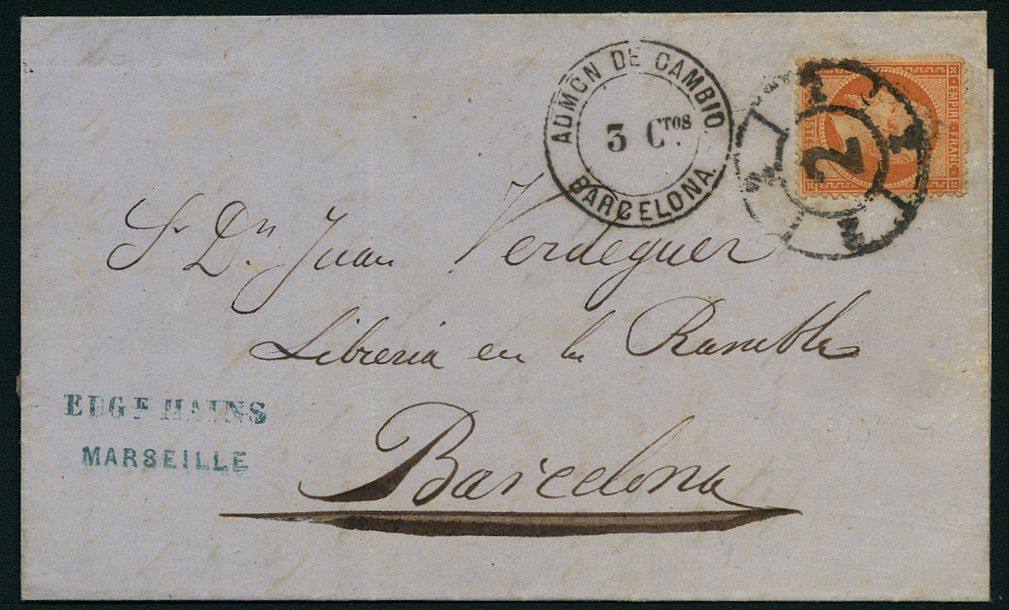 ADMON DE CAMBIO
3 Ctos.
BARCELONA
EMPIRE FRANC
2
Sr. Dn. Juan Verdeguer
Libreria en la Rambla
Barcelona
EUGE HAINS
MARSEILLE